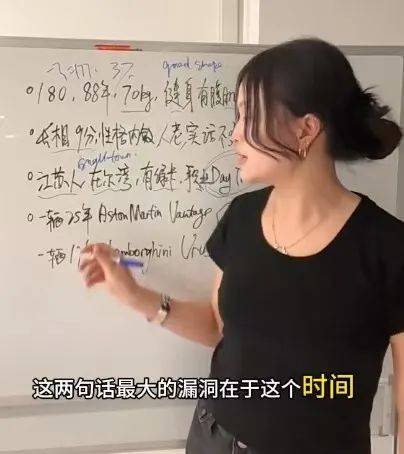 good shape
○180，88年，70kg，健身有腹肌
○长相9分，性格内敛人老实话不
small town
○江苏人在尔湾，有绿卡，职业Day
○一辆25年 Aston Martin Vantage
一辆 Lamborghini Uru
这两句话最大的漏洞在于这个时间